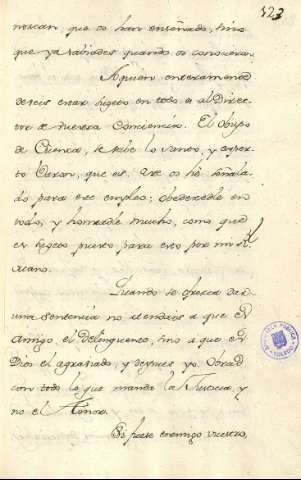 323
que os han enseñado, sino
que ya sabiades quando os conocieran.
A quien enteramente
deveis estar sugeto en todo es al Direc-
tor de vuestra Conciencia. El Obispo
de Cuenca, es este lo vuestro, y
que es. Ese os he señala-
do para ese empleo; obedecedle en
todo, y honradle mucho, como que
es sugeto puesto para esto por mi
mano.
Quando se ofresca dar
una sentencia no atendais a que es
Amigo, el delinquente, sino a que es
Dios el agraviado, y despues yo. Obrad
con todo lo que manda la Justicia, y
no el Amor.
Si fuese enemigo vuestro,